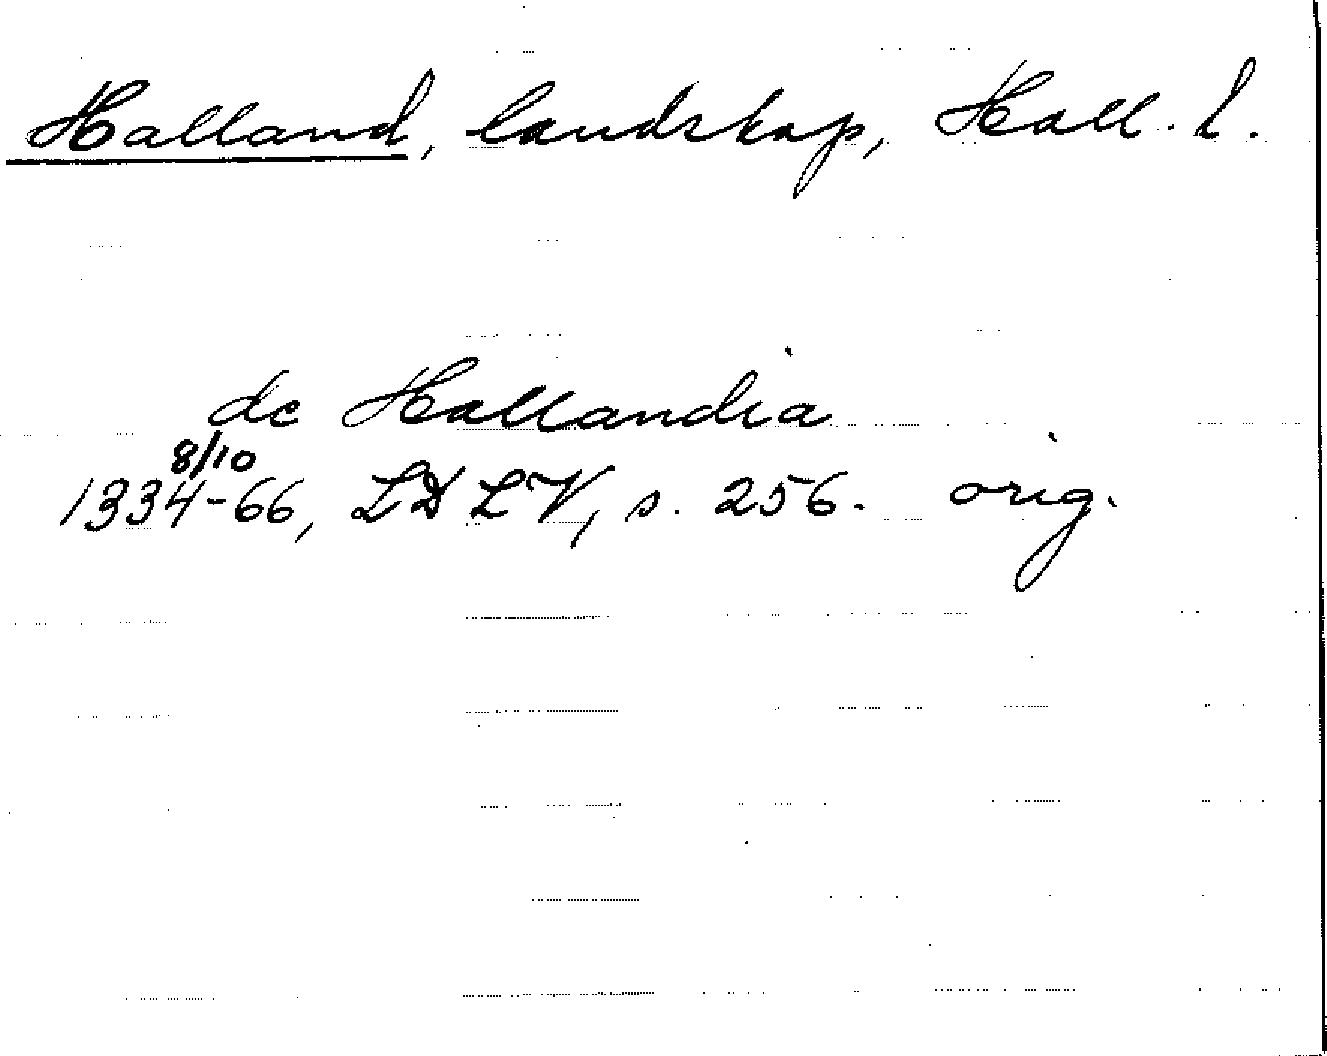 Halland, landskap, Hall. l.
de Hallandia
8/10
1334-66, LD LV, s. 256. orig.